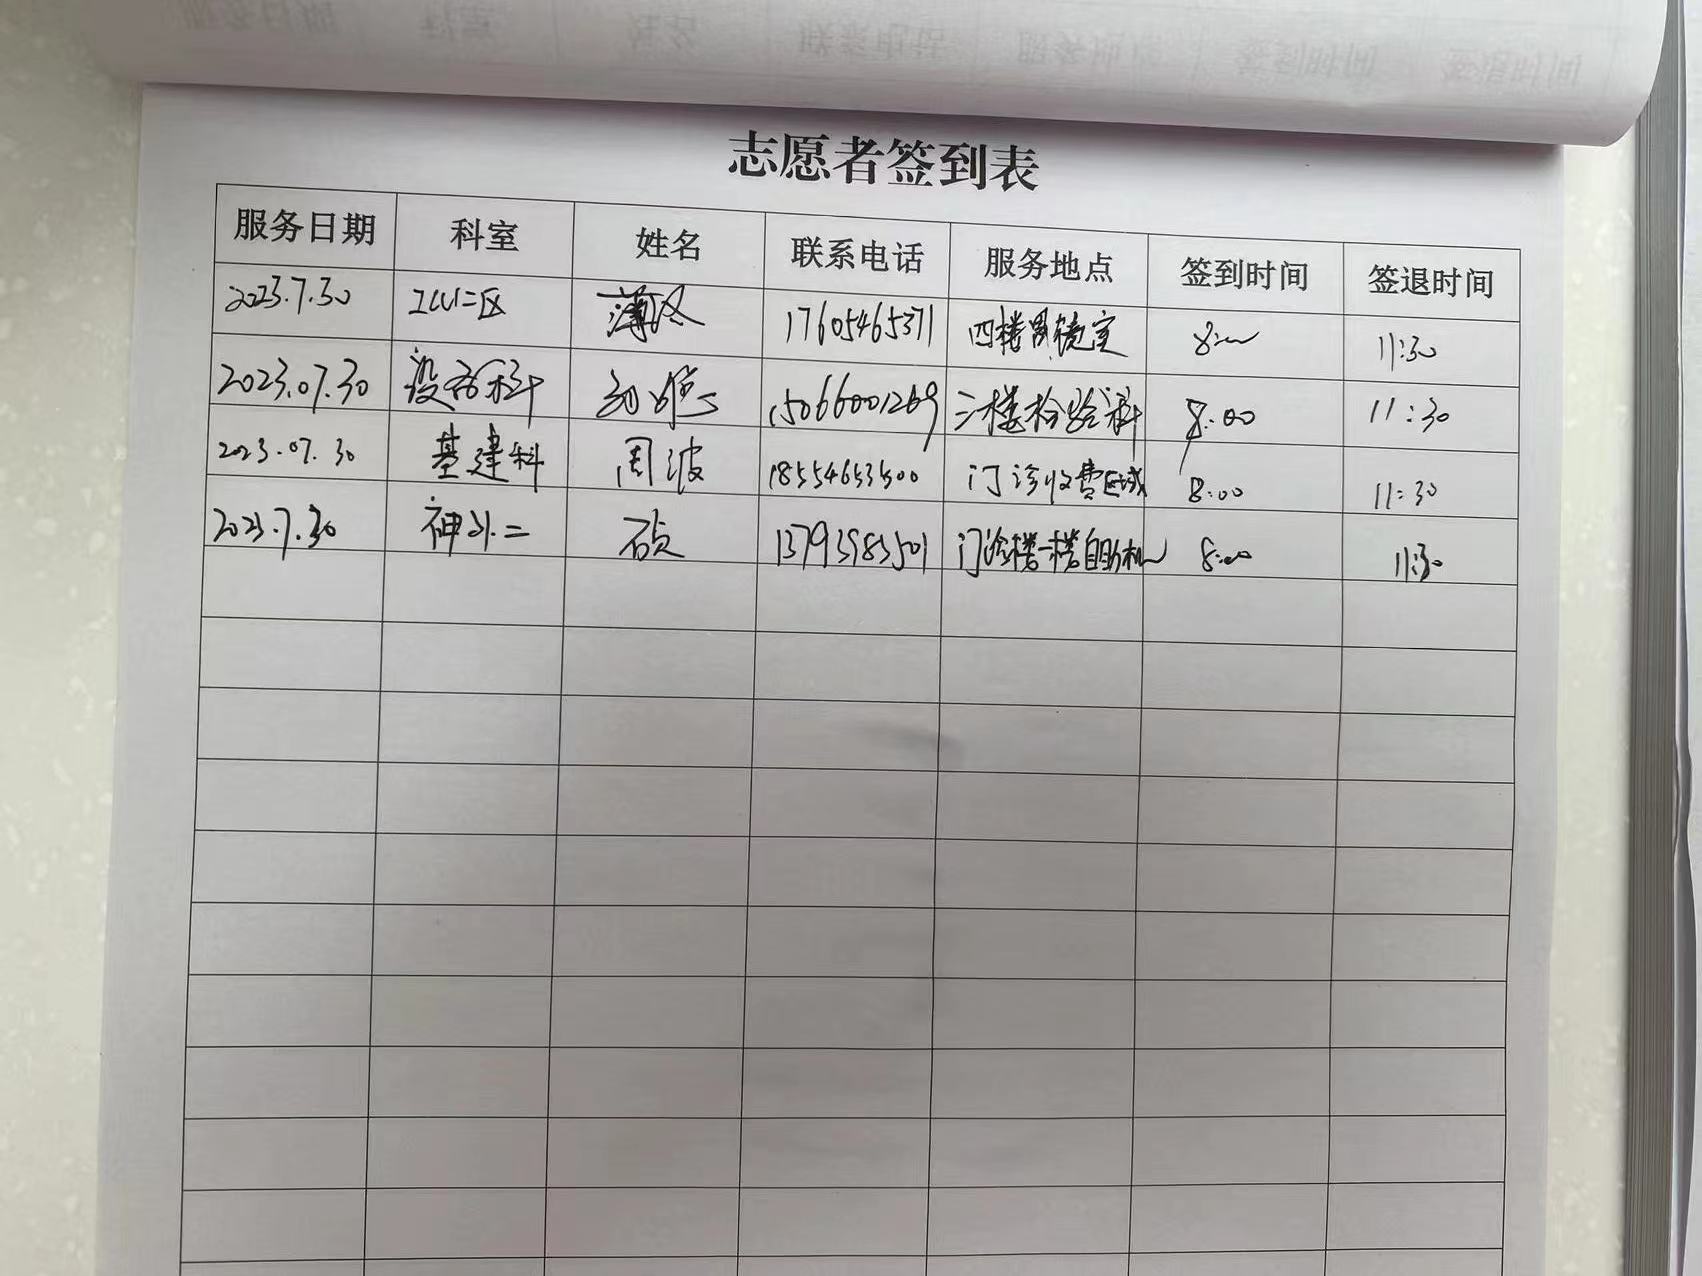 志愿者签到表
服务日期 科室 姓名 联系电话 服务地点 签到时间 签退时间
2023.7.30 ICU二区 薄冬 17605465371 四楼胃镜室 8:00 11:30
2023.07.30 设备科 15066001269 三楼检验科 8:00 11:30
2023.07.30 基建科 周波 18554653500 门诊收费区域 8:00 11:30
2023.7.30 神外二 13793983501 门诊楼一楼自助机 8:00 11:30